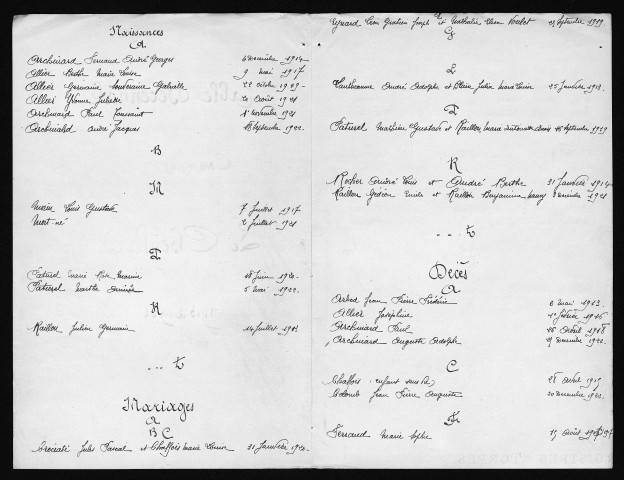 Naissances
A
Archinard Fernand André Georges 4 Décembre 1914
Allier Berthe Marie Louise 9 Mai 1917
Allier Germaine Gabrielle 22 Octobre 1919
Allier Yvonne Juliette 2 Août 1921
Archinard Paul Toussaint 1er Novembre 1921
Archinard André Jacques 18 Septembre 1922
B
M
Morin Louis Gustave 7 Juillet 1917
Mort-né 2 Juillet 1921
P
Marie 28 Juin 1920
Marthe 5 Mai 1922
R
Raillon Julien Germain 14 Juillet 1913
... Z
Mariages
A
B C
Jules Pascal et Chaffois Marie Louise 31 Janvier 1920
Léon Joseph et Mathilde Elisa Septembre 1919
G
L
André Adolphe et Blain Julia Marie Louise 25 Janvier 1913
P
Mathieu Gustave et Raillon Marie Antoinette Septembre 1919
R
Rocher Louis et André Berthe 31 Janvier 1914
Raillon Gédéon Emile et Raillon Benjamine Nancy Décembre 1921
... Z
Décès
A
Jean Pierre Frédéric 6 Mai 1913
Allier Joséphine 1er Février 1915
Archinard Paul 26 Avril 1918
Archinard Auguste Adolphe Décembre 1922
C
Chaffois (enfant sans vie) 28 Avril 1919
Colomb Jean Pierre Auguste 20 Décembre 1922
F
Ferrand Marie Août